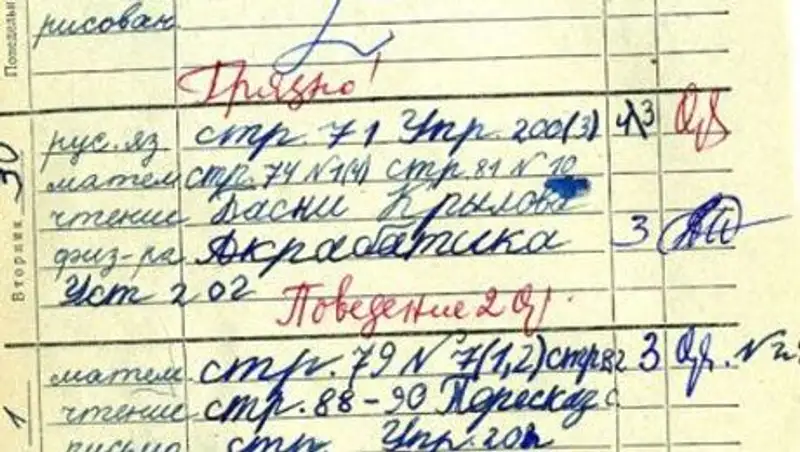 Понедельн
рисован
Грязно!
Вторник 30
рус. яз стр. 71 Упр. 200(3) 3
матем стр. 74 №1(4) стр. 81 № 10
чтение Басни Крылова
физ-ра Акрабатика 3
Уст 202
Поведение 2
1
матем. стр. 79 № 7(1,2) стр 82 3
чтение стр. 88-90 Пересказ
письмо стр. Упр. 20